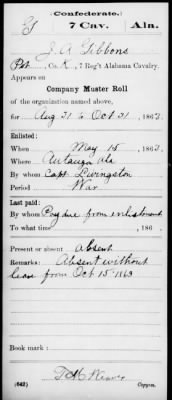 Confederate.
G 7 Cav. Ala.
J. A. Gibbons
Pvt, Co. K, 7 Reg't Alabama Cavalry.
Appears on
Company Muster Roll
of the organization named above,
for Aug 31 to Oct 31, 1863.
Enlisted:
When May 15, 1863.
Where Autauga, Ala
By whom Capt. Livingston
Period War
Last paid:
By whom Pay due from enlistment
To what time , 186 .
Present or absent Absent
Remarks: Absent without
leave from Oct 15 1863
Book mark:
(642) Copyist.